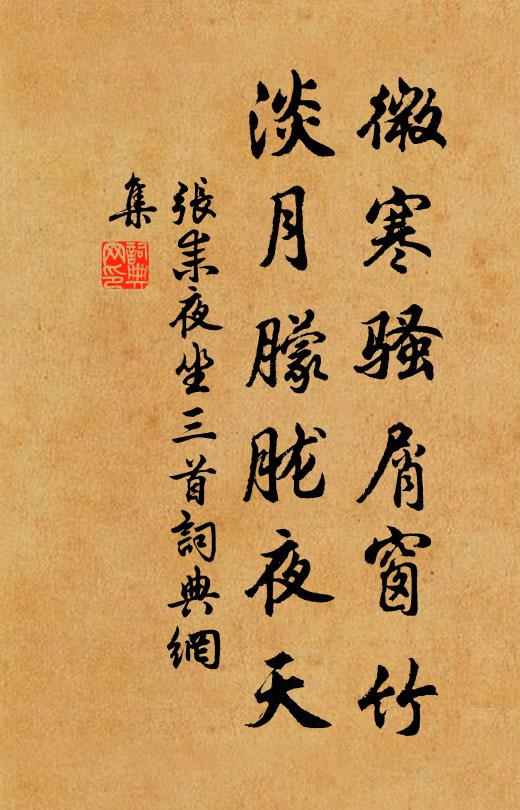 微寒骚屑窗竹
淡月朦胧夜天
張耒夜坐三首詞典網
集
詞典
网印